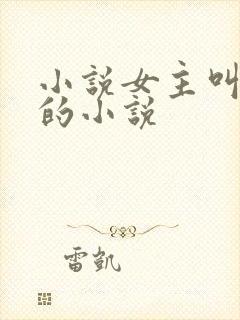 小説女主叫
的小説
雷凱